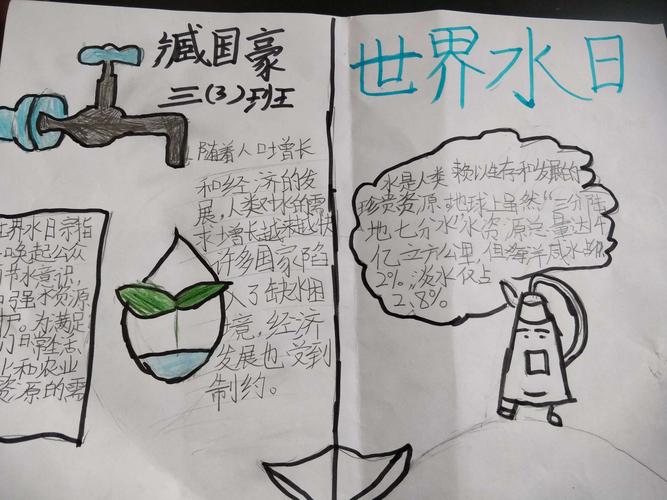 臧国豪
三(3)班
世界水日
随着人口增长
和经济的发
展,人类对水的需
求增长越来越快
许多国家陷
入了缺水困
境,经济
发展也受到
制约。
世界水日宗旨
唤起公众
节水意识,
加强水资源
保护。为满足
们日常生活、
业和农业
资源的需
水是人类赖以生存和发展的
珍贵资源,地球上虽然“三分陆
地七分水”水资源总量达
亿立方公里,但海洋咸水占
2%,淡水仅占
2.8%